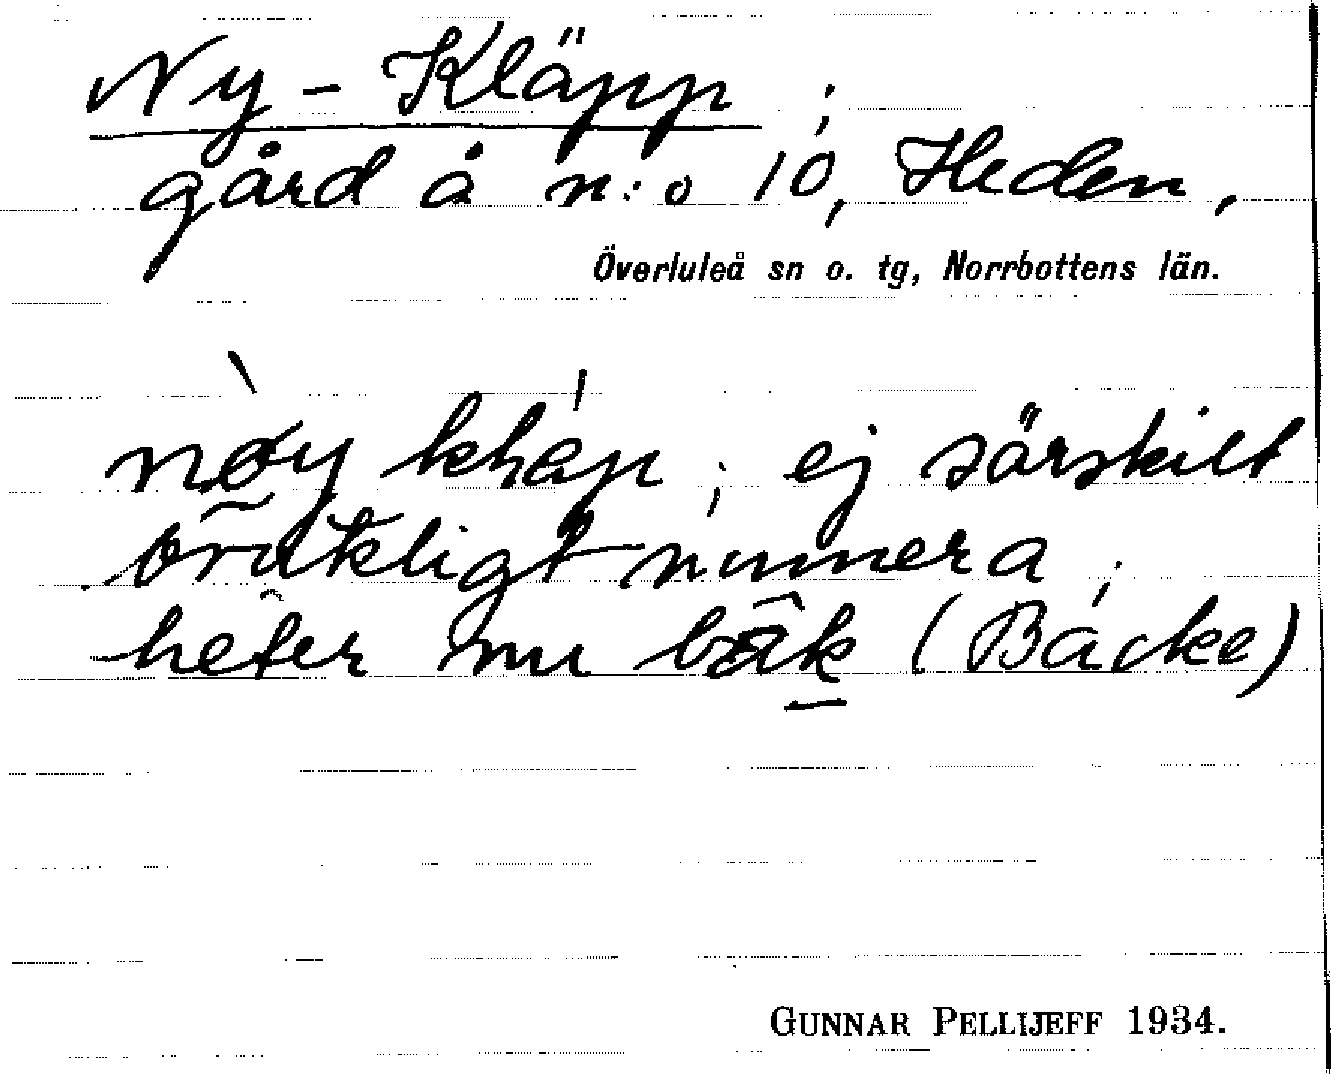 Ny-Kläpp;
gård å n:o 10, Heden,
Överluleå sn o. tg, Norrbottens län.
ej särskilt
brukligt numera;
heter nu (Bäcke)
GUNNAR PELLIJEFF 1934.